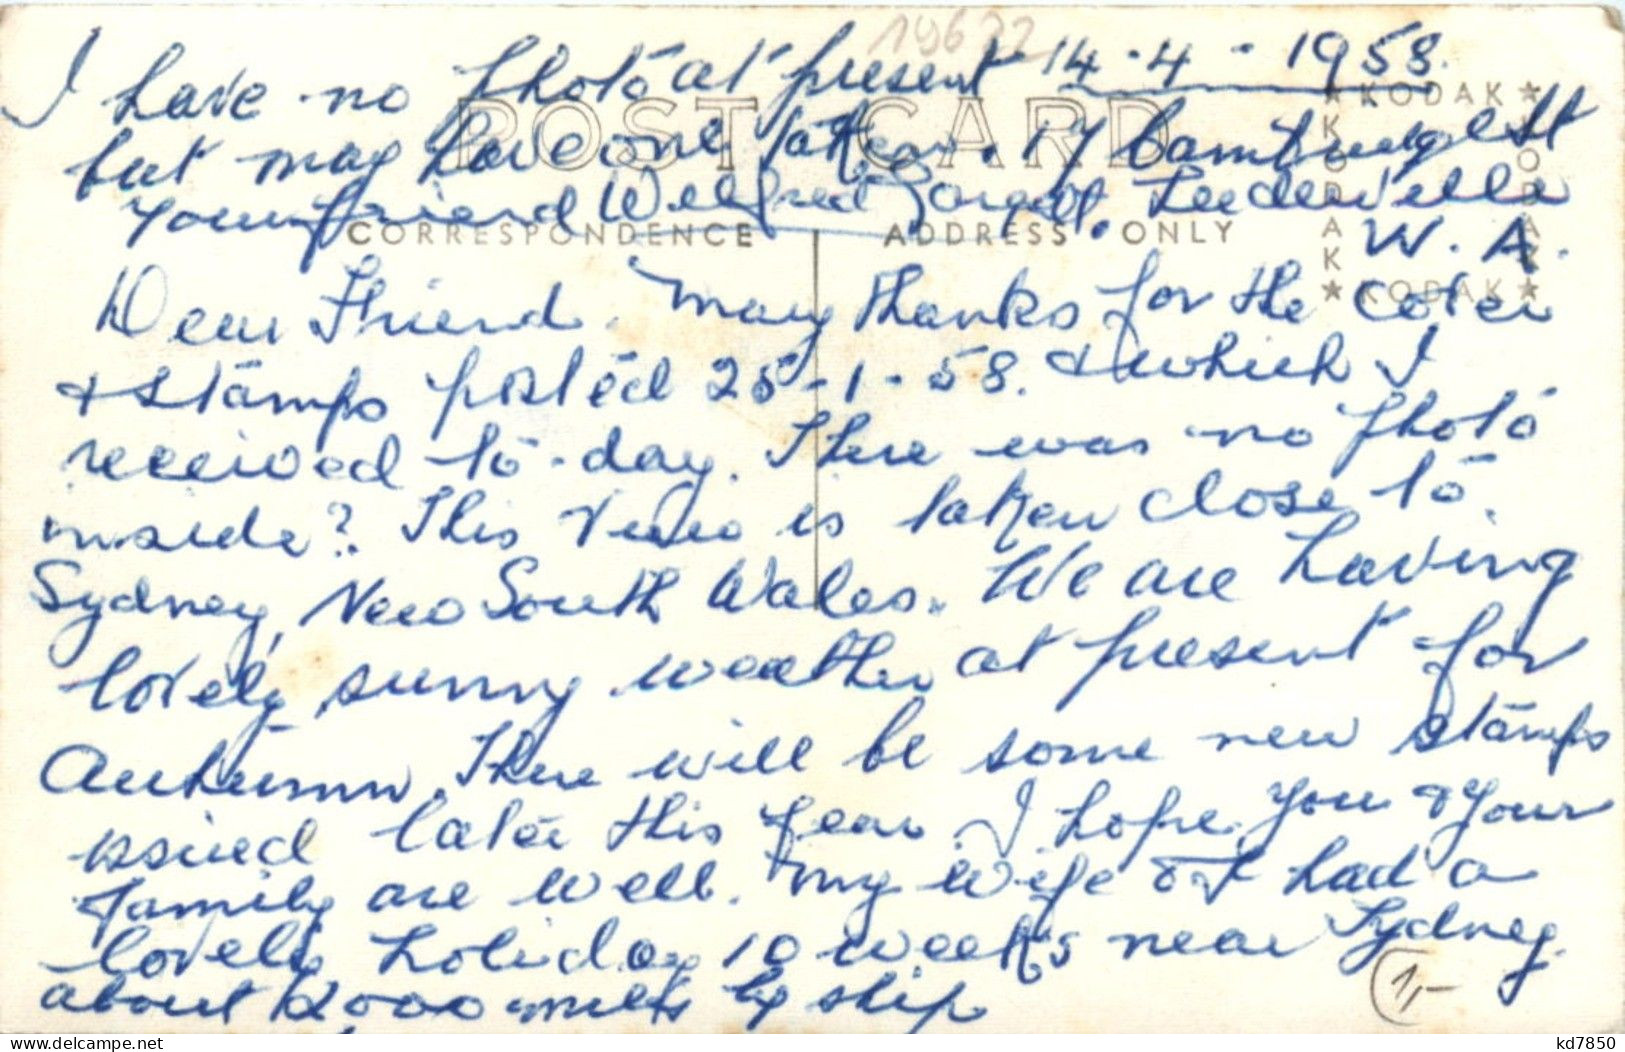 19622
I have no photo at present 14-4-1958.
POST CARD
but may have one taken. 17 Cambridge St
Your friend Wilfred Leederville
W. A.
CORRESPONDENCE ADDRESS ONLY
★ KODAK ★
KODAK
KODAK
★ KODAK ★
Dear Friend. Many thanks for the cover
& stamps posted 25-1-58. & which I
received to-day. There was no photo
inside? This view is taken close to
Sydney, New South Wales. We are having
lovely sunny weather at present for
Autumn. There will be some new stamps
issued later this year. I hope you & your
family are well. My wife & I had a
lovely holiday 10 weeks near Sydney.
about 2,000 miles by ship
1,-
delcampe.net
kd7850